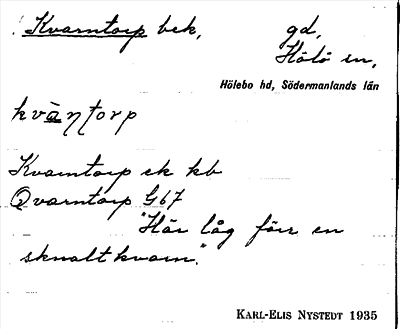 Kvarntorp bek, gd,
Hölö sn,
Hölebo hd, Södermanlands län
kvὰηtorp
Kvarntorp ek kb
Qvarntorp G67
"Här låg förr en
skvaltkvarn."
KARL-ELIS NYSTEDT 1935